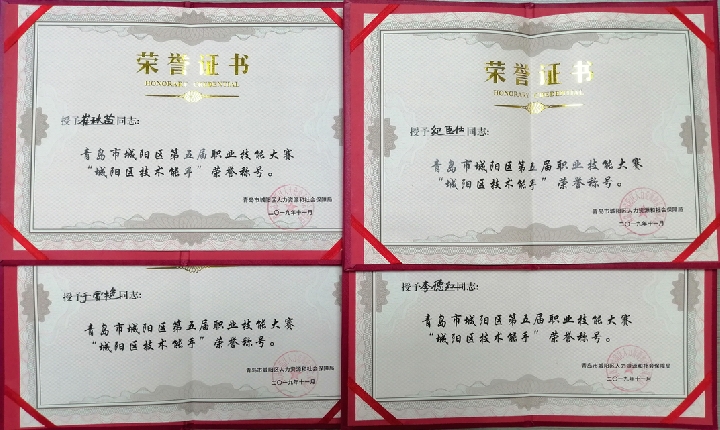 荣誉证书
HONORARY CREDENTIAL
授予崔珠茵同志：
青岛市城阳区第五届职业技能大赛
“城阳区技术能手”荣誉称号。
青岛市城阳区人力资源和社会保障局
二〇一九年十一月
荣誉证书
HONORARY CREDENTIAL
授予同志：
青岛市城阳区第五届职业技能大赛
“城阳区技术能手”荣誉称号。
青岛市城阳区人力资源和社会保障局
二〇一九年十一月
授予同志：
青岛市城阳区第五届职业技能大赛
“城阳区技术能手”荣誉称号。
青岛市城阳区人力资源和社会保障局
二〇一九年十一月
授予李德红同志：
青岛市城阳区第五届职业技能大赛
“城阳区技术能手”荣誉称号。
青岛市城阳区人力资源和社会保障局
二〇一九年十一月